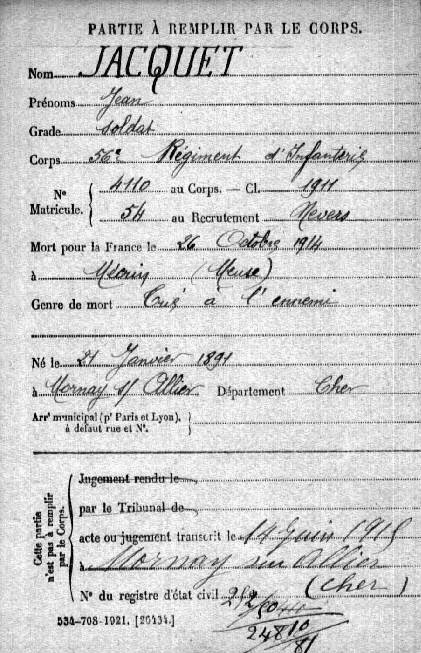 PARTIE À REMPLIR PAR LE CORPS.
Nom JACQUET
Prénoms Jean
Grade soldat
Corps 56e Régiment d'Infanterie
N° Matricule. 4110 au Corps. — Cl. 1911
54 au Recrutement Nevers
Mort pour la France le 26 Octobre 1914
à Mécrin (Meuse)
Genre de mort Tué à l'ennemi
Né le 21 Janvier 1891
à Mornay s/ Allier Département Cher
Arrt municipal (pr Paris et Lyon),
à défaut rue et N°.
Cette partie n'est pas à remplir par le Corps.
Jugement rendu le
par le Tribunal de
acte ou jugement transcrit le 14 Juin 1915
à Mornay sur Allier
(Cher)
N° du registre d'état civil
534-708-1921. [26434.]
24810
81